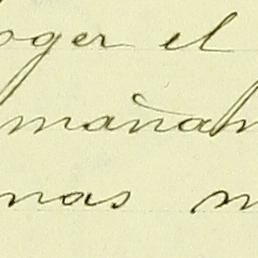 oger el
mañan
nas m